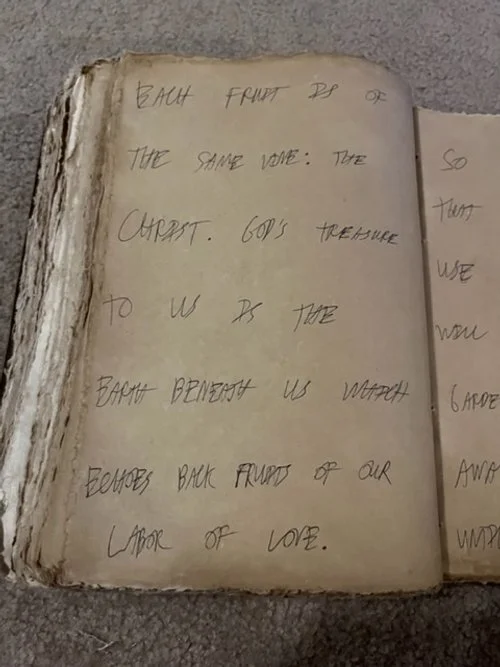 EACH FRUIT IS OF
THE SAME VINE: THE
CHRIST. GOD'S TREASURE
TO US IS THE
EARTH BENEATH US WHICH
ECHOES BACK FRUITS OF OUR
LABOR OF LOVE.
SO
THAT
USE
WILL
GARDE
AWA
UNTI